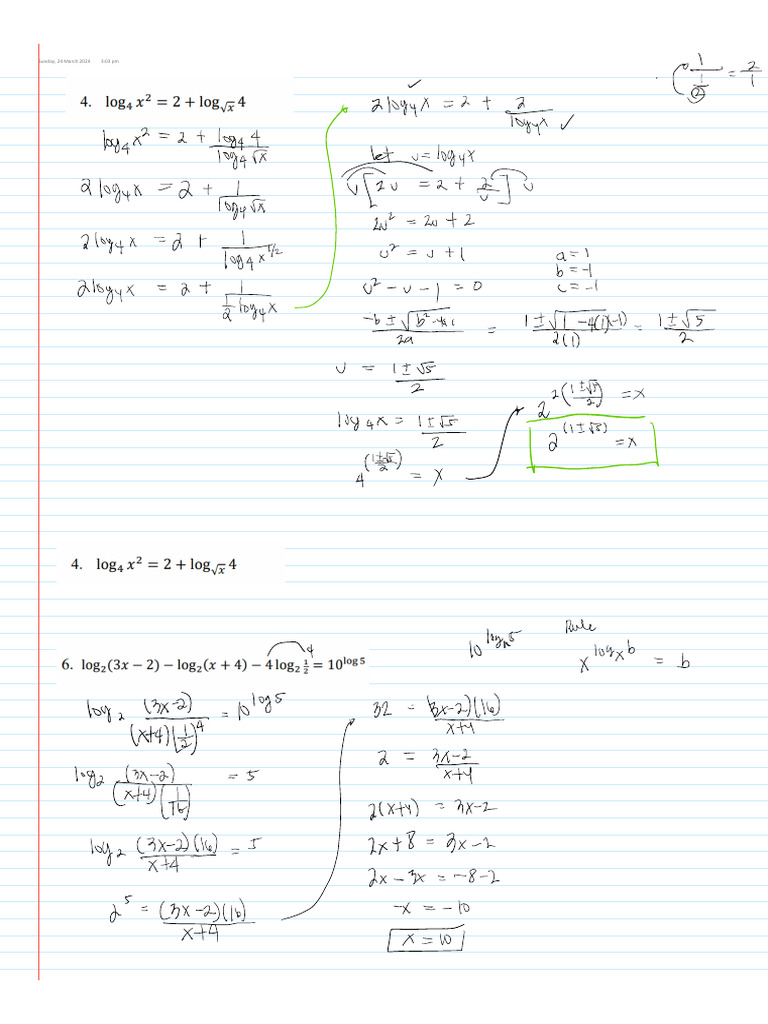 Sunday, 24 March 2024 3:03 pm
4. log₄ x² = 2 + log_√x 4
log₄x² = 2 + log₄4 / log₄√x
2log₄x = 2 + 1 / log₄√x
2log₄x = 2 + 1 / log₄x^(1/2)
2log₄x = 2 + 1 / (1/2 log₄x)
1 / (1/2) = 2/1
2log₄x = 2 + 2 / log₄x
let u = log₄x
u[2u = 2 + 2/u] u
2u² = 2u + 2
u² = u + 1
a = 1
b = -1
c = -1
u² - u - 1 = 0
= (1 ± √(1 - 4(1)(-1))) / 2(1) = (1 ± √5) / 2
u = (1 ± √5) / 2
log₄x = (1 ± √5) / 2
4^((1±√5)/2) = x
2^(2((1±√5)/2)) = x
2^((1±√5)) = x
4. log₄ x² = 2 + log_√x 4
6. log₂(3x − 2) − log₂(x + 4) − 4 log₂ 1/2 = 10^(log 5)
4
Rule
x^(log_x b) = b
log₂ (3x-2) / (x+4)(1/2)⁴ = 10^(log 5)
log₂ (3x-2) / (x+4)(1/16) = 5
log₂ (3x-2)(16) / x+4 = 5
2⁵ = (3x-2)(16) / x+4
32 = (3x-2)(16) / x+4
2 = 3x-2 / x+4
2(x+4) = 3x-2
2x+8 = 3x-2
2x-3x = -8-2
-x = -10
x = 10